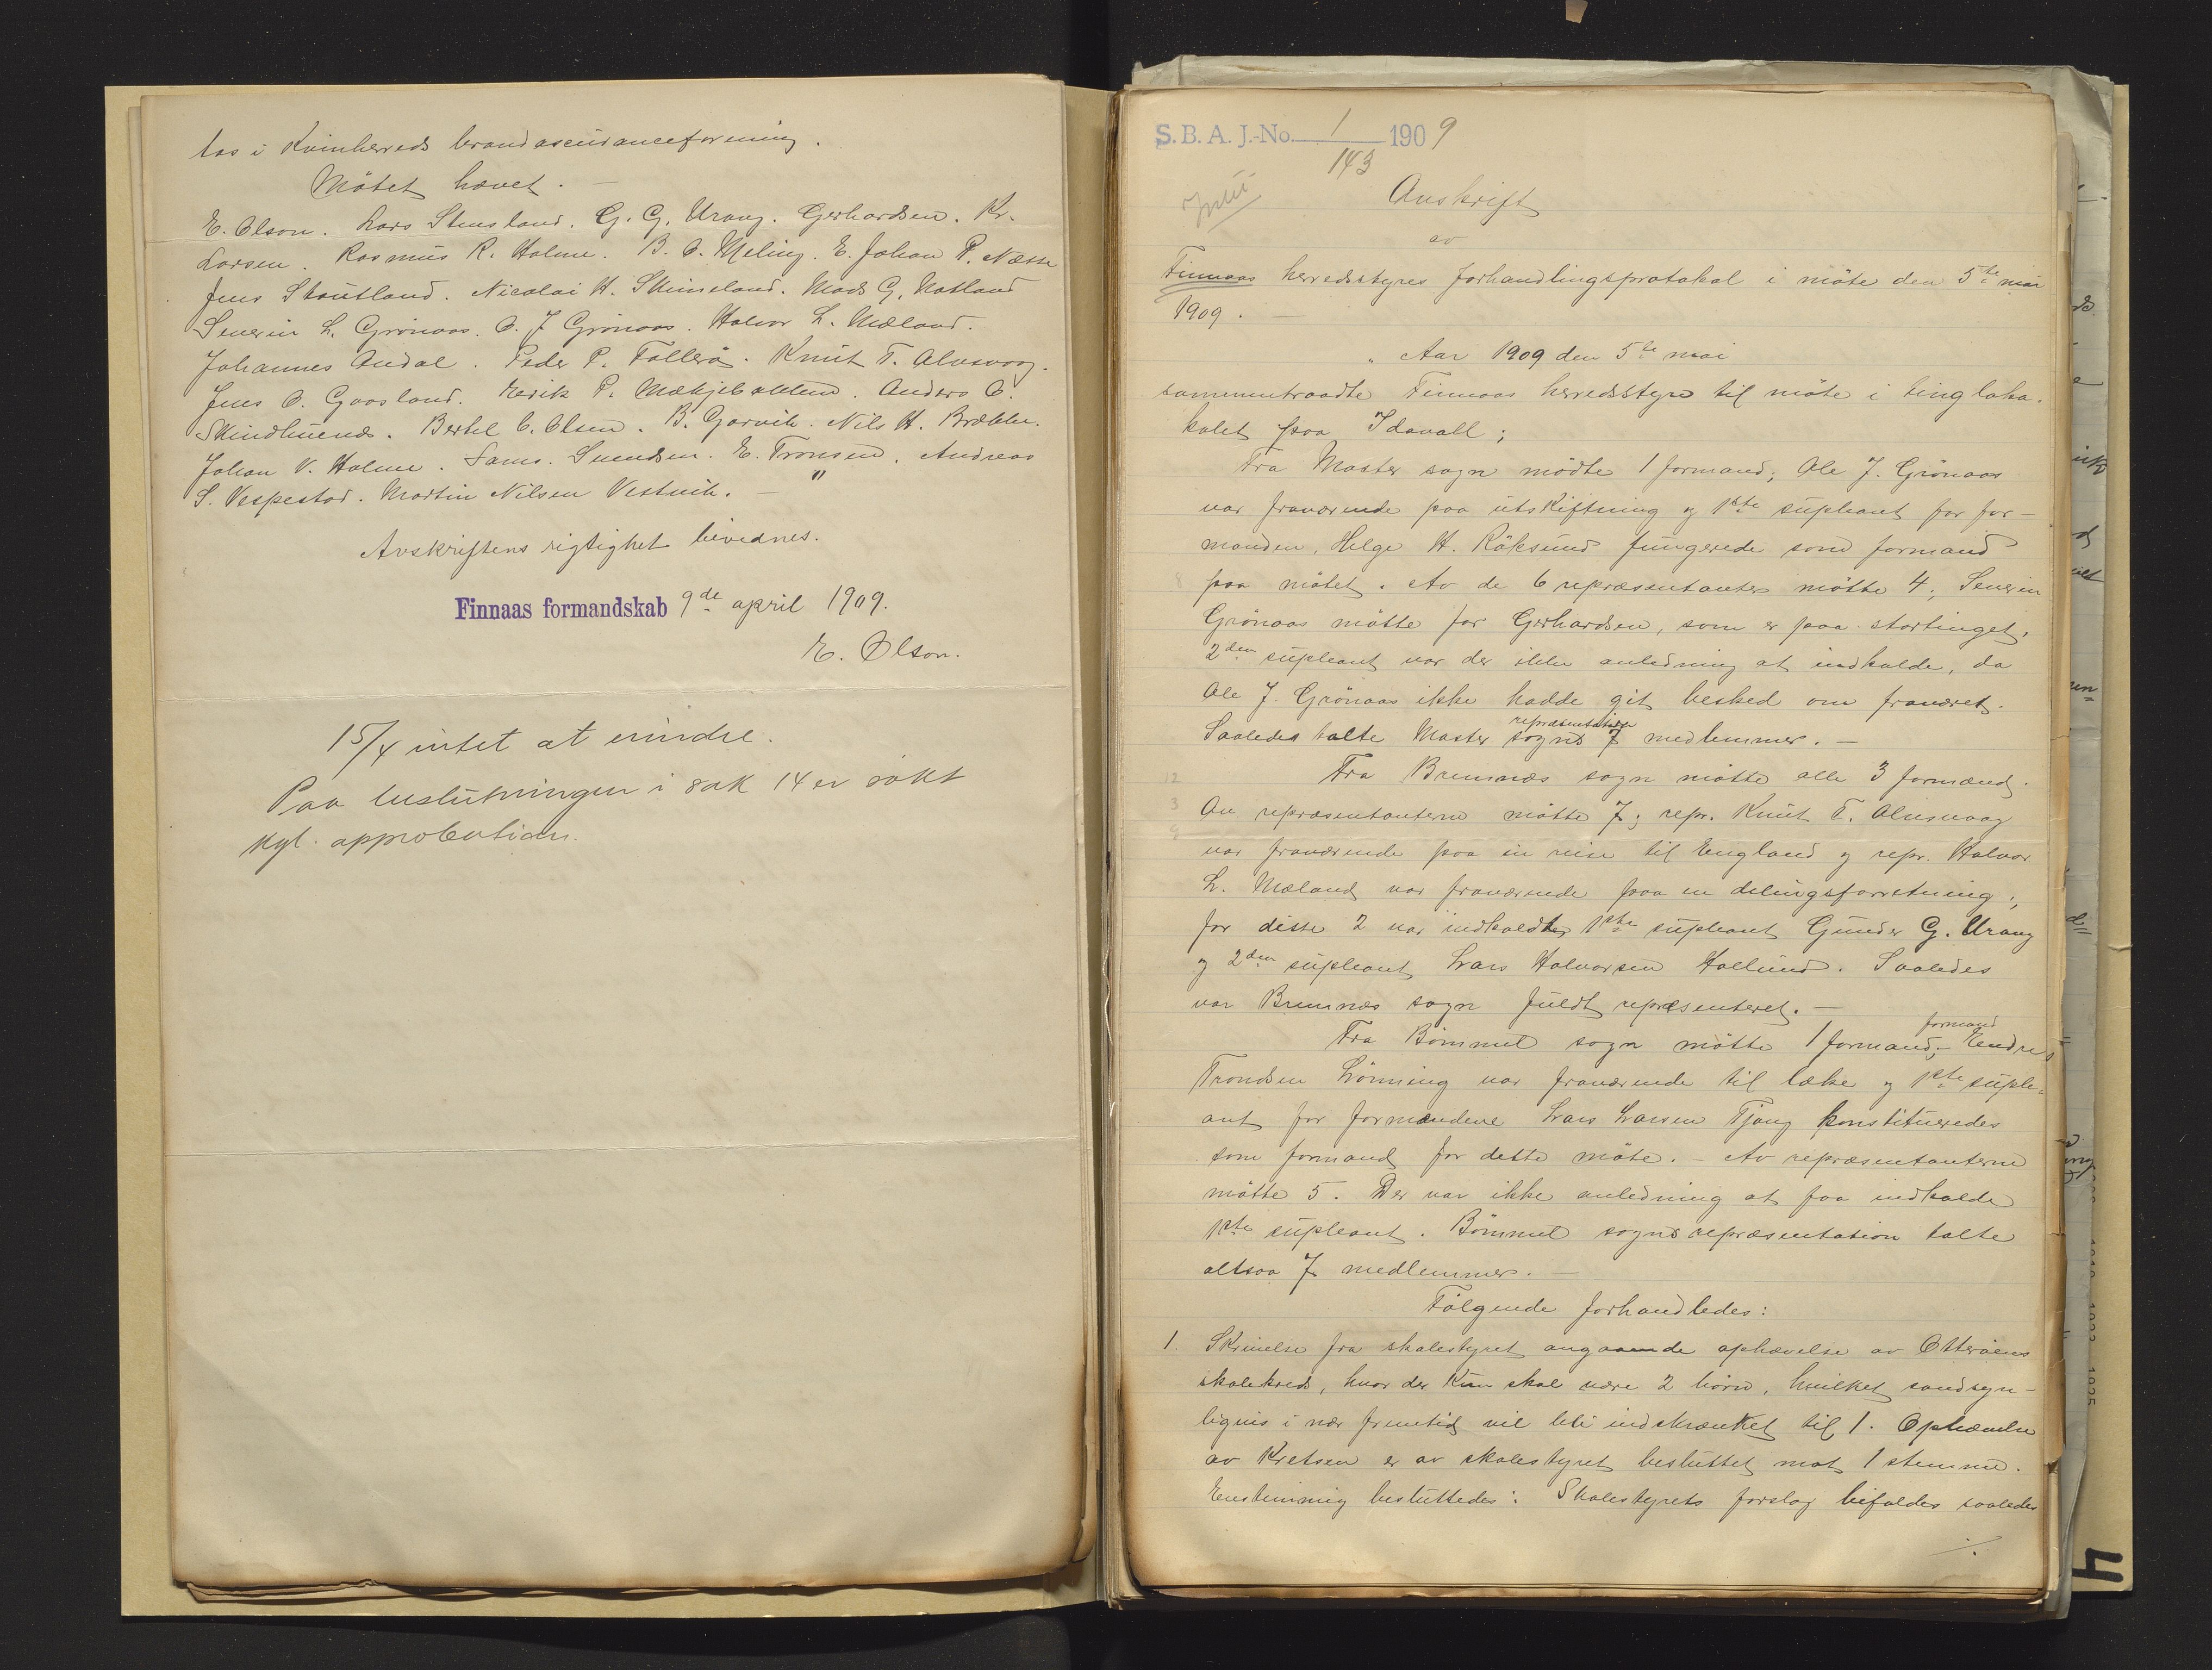 tas i Kvinherreds brandascuranceforening.
Mötet hævet. —
E. Olson. Lars Stensland. G. G. Urang. Gerhardsen. Kr.
Larsen. Rasmus R. Holme. B. O. Meling. E. Johan P. Næsse
Jens Stautland. Nicolai H. Skimmeland. Mads G. Natland
Severin L. Grönaas. O. J Grönaas. Halvor L. Mæland.
Johannes Andal. Peder P. Follerö. Knut T. Alusvaag.
Jens O. Gaasland. Eerik P. Mækjebakken. Anders O.
Skindhuends. Bertel C. Olsen. B. Gorvik. Nils H. Brække.
Johan V. Holme. Sams. Svendsen. E. Tronsen. Andreas
S. Vespestad. Martin Nilsen Vestvik. — "
Avskriftens rigtighet bevidnes.
Finnaas formandskab 9de april 1909.
E. Olson.
15/4 intet at erindre.
Paa beslutningen i sak 14 er søkt
kgl. approbation.
S. B. A. J.-No. 1 1909
143
Avskrift
av
Finnaas herredsstyres forhandlingsprotokol i möte den 5te mai
1909. —
„ Aar 1909 den 5te mai
sammentraadte Finnaas herredsstyre til möte i tingloka-
kalet paa Idavall;
Fra Moster sogn mödte 1 formand; Ole J. Grönaas
var fraværende paa utskiftning og 1ste supleant for for-
manden, Helge H. Röksund fungerede som formand
paa mötet. Av de 6 repræsentanter mötte 4; Severin
Grönaas mötte for Gerhardsen, som er paa stortinget,
2den supleant var der ikke anledning at indkalde, da
Ole J. Grönaas ikke hadde git besked om fraværet.
repræsentation
Saaledes talte Moster sogns 7 medlemmer. —
Fra Bremnæs sogn mötte alle 3 formænd.
Av repræsentanterne mötte 7; repr. Knut T. Alusvaag
var fraværende paa en reise til England og repr. Halvor
L. Mæland var fraværende paa en delingsforretning;
for disse 2 var indkaldt 1ste supleant Gunder G. Urang
og 2den supleant Lars Halvorsen Hollund. Saaledes
var Bremnæs sogn fuldt repræsenteret. —
formand
Fra Bömmel sogn mötte 1 formand; – Endre
Trondsen Lönning var fraværende til læke og 1ste suple-
ant for formændene Lars Larsen Tjong konstitueredes
som formand for dette möte. – Av repræsentanterne
mötte 5. Der var ikke anledning at faa indkalde
1ste supleant. Bömmel sogns repræsentation talte
altsaa 7 medlemmer. —
Fölgende forhandledes:
1. Skrivelse fra skolestyret angaaende ophævelse av Otteröens
skolekreds, hvor der kun skal være 2 börn, hvilket sandsyn-
ligvis i nær fremtid vil bli indskrænket til 1. Ophævelse
av Kretsen er av skolestyret besluttet mot 1 stemme.
Enstemmig besluttedes: Skolestyrets forslag bifaldes saaledes
./.